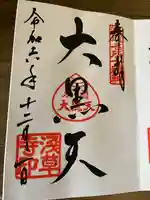 奉拝
大黒天
大黒天
令和六年十二月一日
浅草寺印